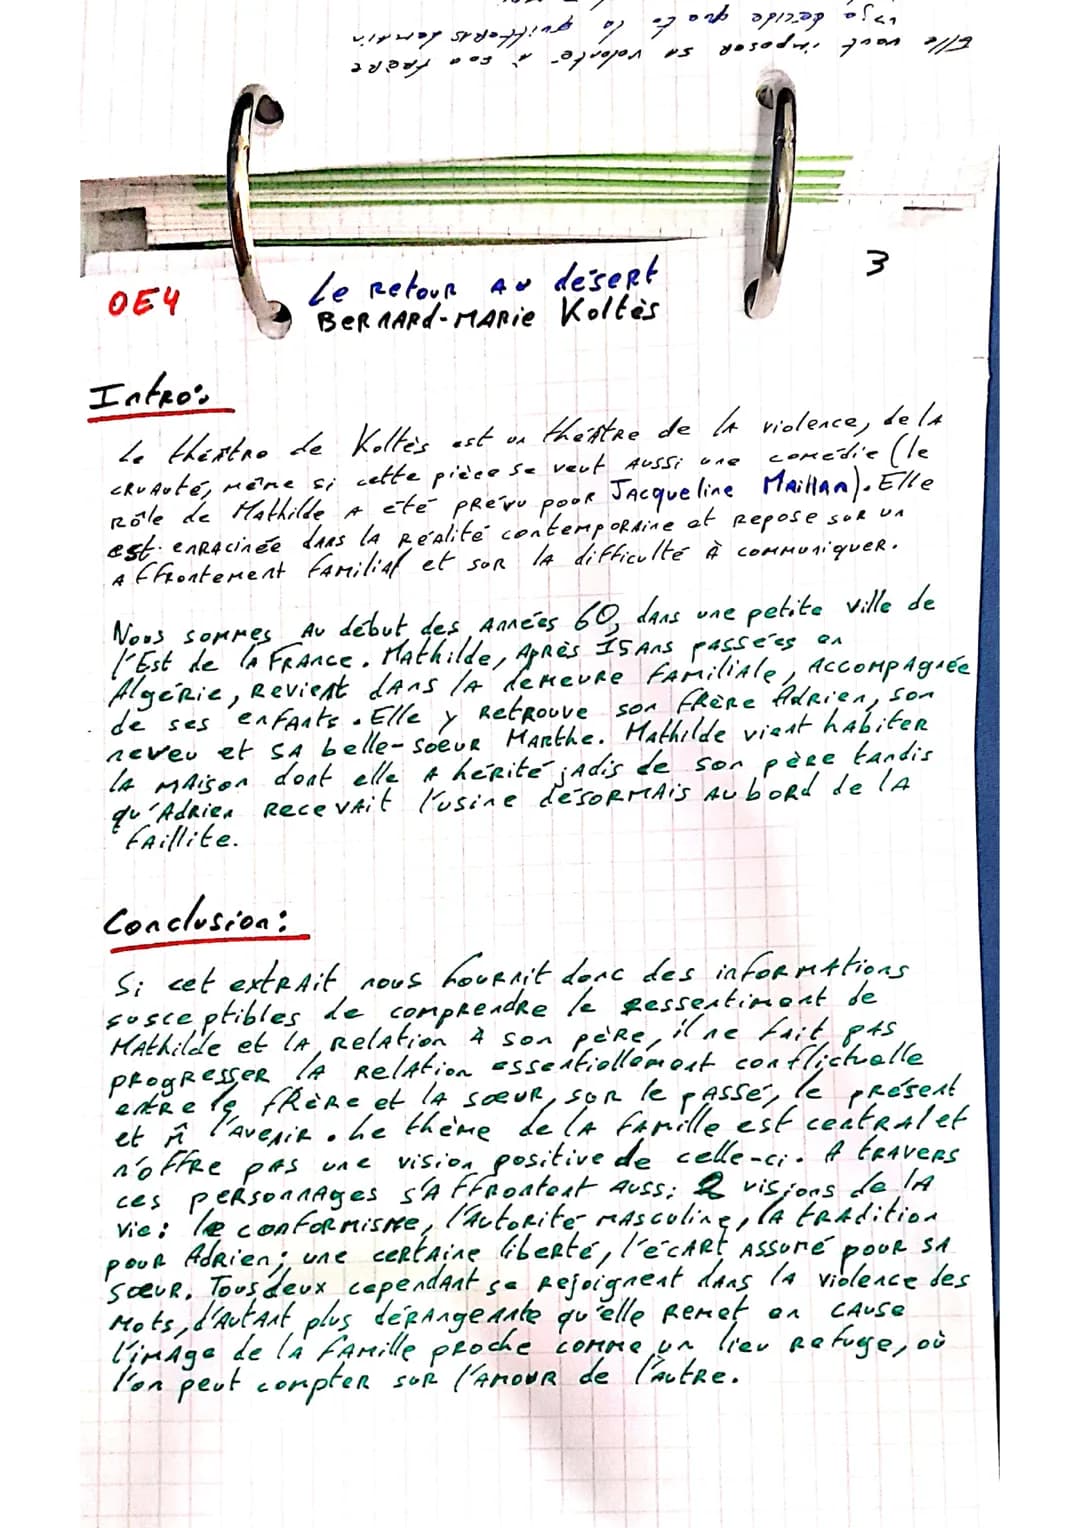 Elle veut imposer sa volonté à son frère
déjà décidé que tu la quitteras demain
3
OE4
Le Retour au désert
BERNARD-MARIE Koltès
Intro:
Le théâtre de Koltès est un théâtre de la violence, de la
cruauté, même si cette pièce se veut aussi une comédie (le
Rôle de Mathilde a été prévu pour Jacqueline Maillan). Elle
est enracinée dans la réalité contemporaine et repose sur un
affrontement familial et sur la difficulté à communiquer.
Nous sommes au début des années 60, dans une petite ville de
l'Est de la France. Mathilde, après 15 ans passées en
Algérie, revient dans la demeure familiale, accompagnée
de ses enfants. Elle y retrouve son frère Adrien, son
neveu et sa belle-soeur Marthe. Mathilde vient habiter
la maison dont elle a hérité jadis de son père tandis
qu'Adrien recevait l'usine désormais au bord de la
faillite.
Conclusion:
Si cet extrait nous fournit donc des informations
susceptibles de comprendre le ressentiment de
Mathilde et la relation à son père, il ne fait pas
progresser la relation essentiellement conflictuelle
entre le frère et la sœur, sur le passé, le présent
et à l'avenir. Le thème de la famille est central et
n'offre pas une vision positive de celle-ci. A travers
ces personnages s'affrontent aussi 2 visions de la
vie: le conformisme, l'autorité masculine, la tradition
pour Adrien; une certaine liberté, l'écart assumé pour sa
sœur. Tous deux cependant se rejoignent dans la violence des
mots, d'autant plus dérangeante qu'elle remet en cause
l'image de la famille proche comme un lieu refuge, où
l'on peut compter sur l'amour de l'autre.